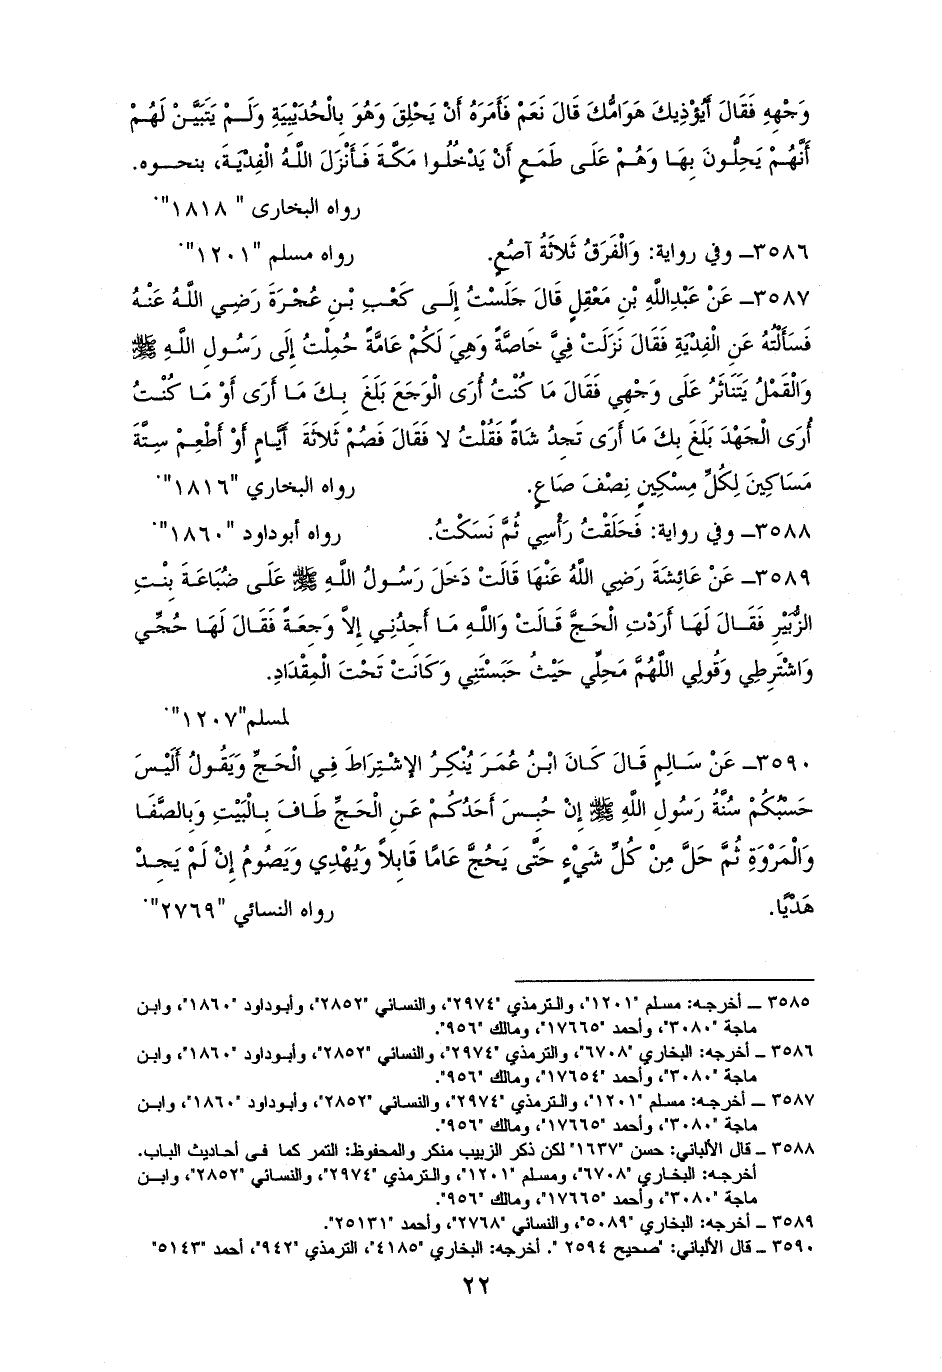 وَجْهِهِ فَقَالَ أَيُؤْذِيكَ هَوَامُّكَ قَالَ نَعَمْ فَأَمَرَهُ أَنْ يَحْلِقَ وَهُوَ بِالْحُدَيْبِيَةِ وَلَـمْ يَتَبَيَّـنْ لَهُـمْ
أَنَّهُـمْ يَحِلُّـونَ بِهَـا وَهُـمْ عَلَـى طَمَـعٍ أَنْ يَدْخُلُـوا مَكَّـةَ فَـأَنْزَلَ اللَّهُ الْفِدْيَـةَ، بنحـوه.
رواه البخارى " ١٨١٨".
٣٥٨٦ـ وفي رواية: وَالْفَرَقُ ثَلاثَةُ آصُعٍ. رواه مسلم "١٢٠١".
٣٥٨٧ـ عَنْ عَبْدِاللَّهِ بْنِ مَعْقِلٍ قَالَ جَلَسْتُ إِلَـى كَعْبِ بْنِ عُجْرَةَ رَضِي اللَّهُ عَنْهُ
فَسَأَلْتُهُ عَنِ الْفِدْيَةِ فَقَالَ نَزَلَتْ فِيَّ خَاصَّةً وَهِيَ لَكُمْ عَامَّةً حُمِلْتُ إِلَى رَسُولِ اللَّهِ ﷺ
وَالْقَمْلُ يَتَنَاثَرُ عَلَى وَجْهِي فَقَالَ مَا كُنْتُ أُرَى الْوَجَعَ بَلَغَ بِكَ مَا أَرَى أَوْ مَا كُنْتُ
أُرَى الْجَهْدَ بَلَغَ بِكَ مَا أَرَى تَجِدُ شَاةً فَقُلْتُ لا فَقَالَ فَصُمْ ثَلاثَةَ أَيَّامٍ أَوْ أَطْعِمْ سِتَّةَ
مَسَاكِينَ لِكُلِّ مِسْكِينٍ نِصْفَ صَاعٍ. رواه البخاري "١٨١٦".
٣٥٨٨ـ وفي رواية: فَحَلَقْتُ رَأْسِي ثُمَّ نَسَكْتُ. رواه أبوداود "١٨٦٠".
٣٥٨٩ـ عَنْ عَائِشَةَ رَضِي اللَّهُ عَنْهَا قَالَتْ دَخَلَ رَسُولُ اللَّهِ ﷺ عَلَى ضُبَاعَةَ بِنْتِ
الزُّبَيْرِ فَقَـالَ لَهَـا أَرَدْتِ الْحَجَّ قَالَتْ وَاللَّهِ مَـا أَجِدُنِي إِلاَّ وَجِعَةً فَقَالَ لَهَا حُجِّي
وَاشْتَرِطِي وَقُولِي اللَّهُمَّ مَحِلِّي حَيْثُ حَبَسْتَنِي وَكَانَتْ تَحْتَ الْمِقْدَادِ.
لمسلم"١٢٠٧".
٣٥٩٠ـ عَنْ سَالِمٍ قَالَ كَانَ ابْنُ عُمَرَ يُنْكِرُ الإِشْتِرَاطَ فِي الْحَجِّ وَيَقُولُ أَلَيْسَ
حَسْبُكُمْ سُنَّةُ رَسُولِ اللَّهِ ﷺ إِنْ حُبِسَ أَحَدُكُمْ عَنِ الْحَجِّ طَافَ بِالْبَيْتِ وَبِالصَّفَا
وَالْمَرْوَةِ ثُمَّ حَلَّ مِنْ كُلِّ شَيْءٍ حَتَّى يَحُجَّ عَامًا قَابِلاً وَيُهْدِي وَيَصُومُ إِنْ لَمْ يَجِدْ
هَدْيًا. رواه النسائي "٢٧٦٩".
٣٥٨٥ ـ أخرجه: مسلم "١٢٠١"، والترمذي "٢٩٧٤"، والنسائي "٢٨٥٢"، وأبوداود "١٨٦٠"، وابن
ماجة "٣٠٨٠"، وأحمد "١٧٦٦٥"، ومالك "٩٥٦".
٣٥٨٦ ـ أخرجه: البخاري "٦٧٠٨"، والترمذي "٢٩٧٤"، والنسائي "٢٨٥٢"، وأبوداود "١٨٦٠"، وابن
ماجة "٣٠٨٠"، وأحمد "١٧٦٥٤"، ومالك "٩٥٦".
٣٥٨٧ ـ أخرجه: مسلم "١٢٠١"، والترمذي "٢٩٧٤"، والنسائي "٢٨٥٢"، وأبوداود "١٨٦٠"، وابن
ماجة "٣٠٨٠"، وأحمد "١٧٦٦٥"، ومالك "٩٥٦".
٣٥٨٨ ـ قال الألباني: حسن "١٦٣٧" لكن ذكر الزبيب منكر والمحفوظ: التمر كما في أحاديث الباب.
أخرجه: البخاري "٦٧٠٨"، ومسلم "١٢٠١"، والترمذي "٢٩٧٤"، والنسائي "٢٨٥٢"، وابن
ماجة "٣٠٨٠"، وأحمد "١٧٦٦٥"، ومالك "٩٥٦".
٣٥٨٩ ـ أخرجه: البخاري "٥٠٨٩"، والنسائي "٢٧٦٨"، وأحمد "٢٥١٣١".
٣٥٩٠ ـ قال الألباني: "صحيح ٢٥٩٤ ". أخرجه: البخاري "٤١٨٥"، الترمذي "٩٤٢"، أحمد "٥١٤٣"
٢٢